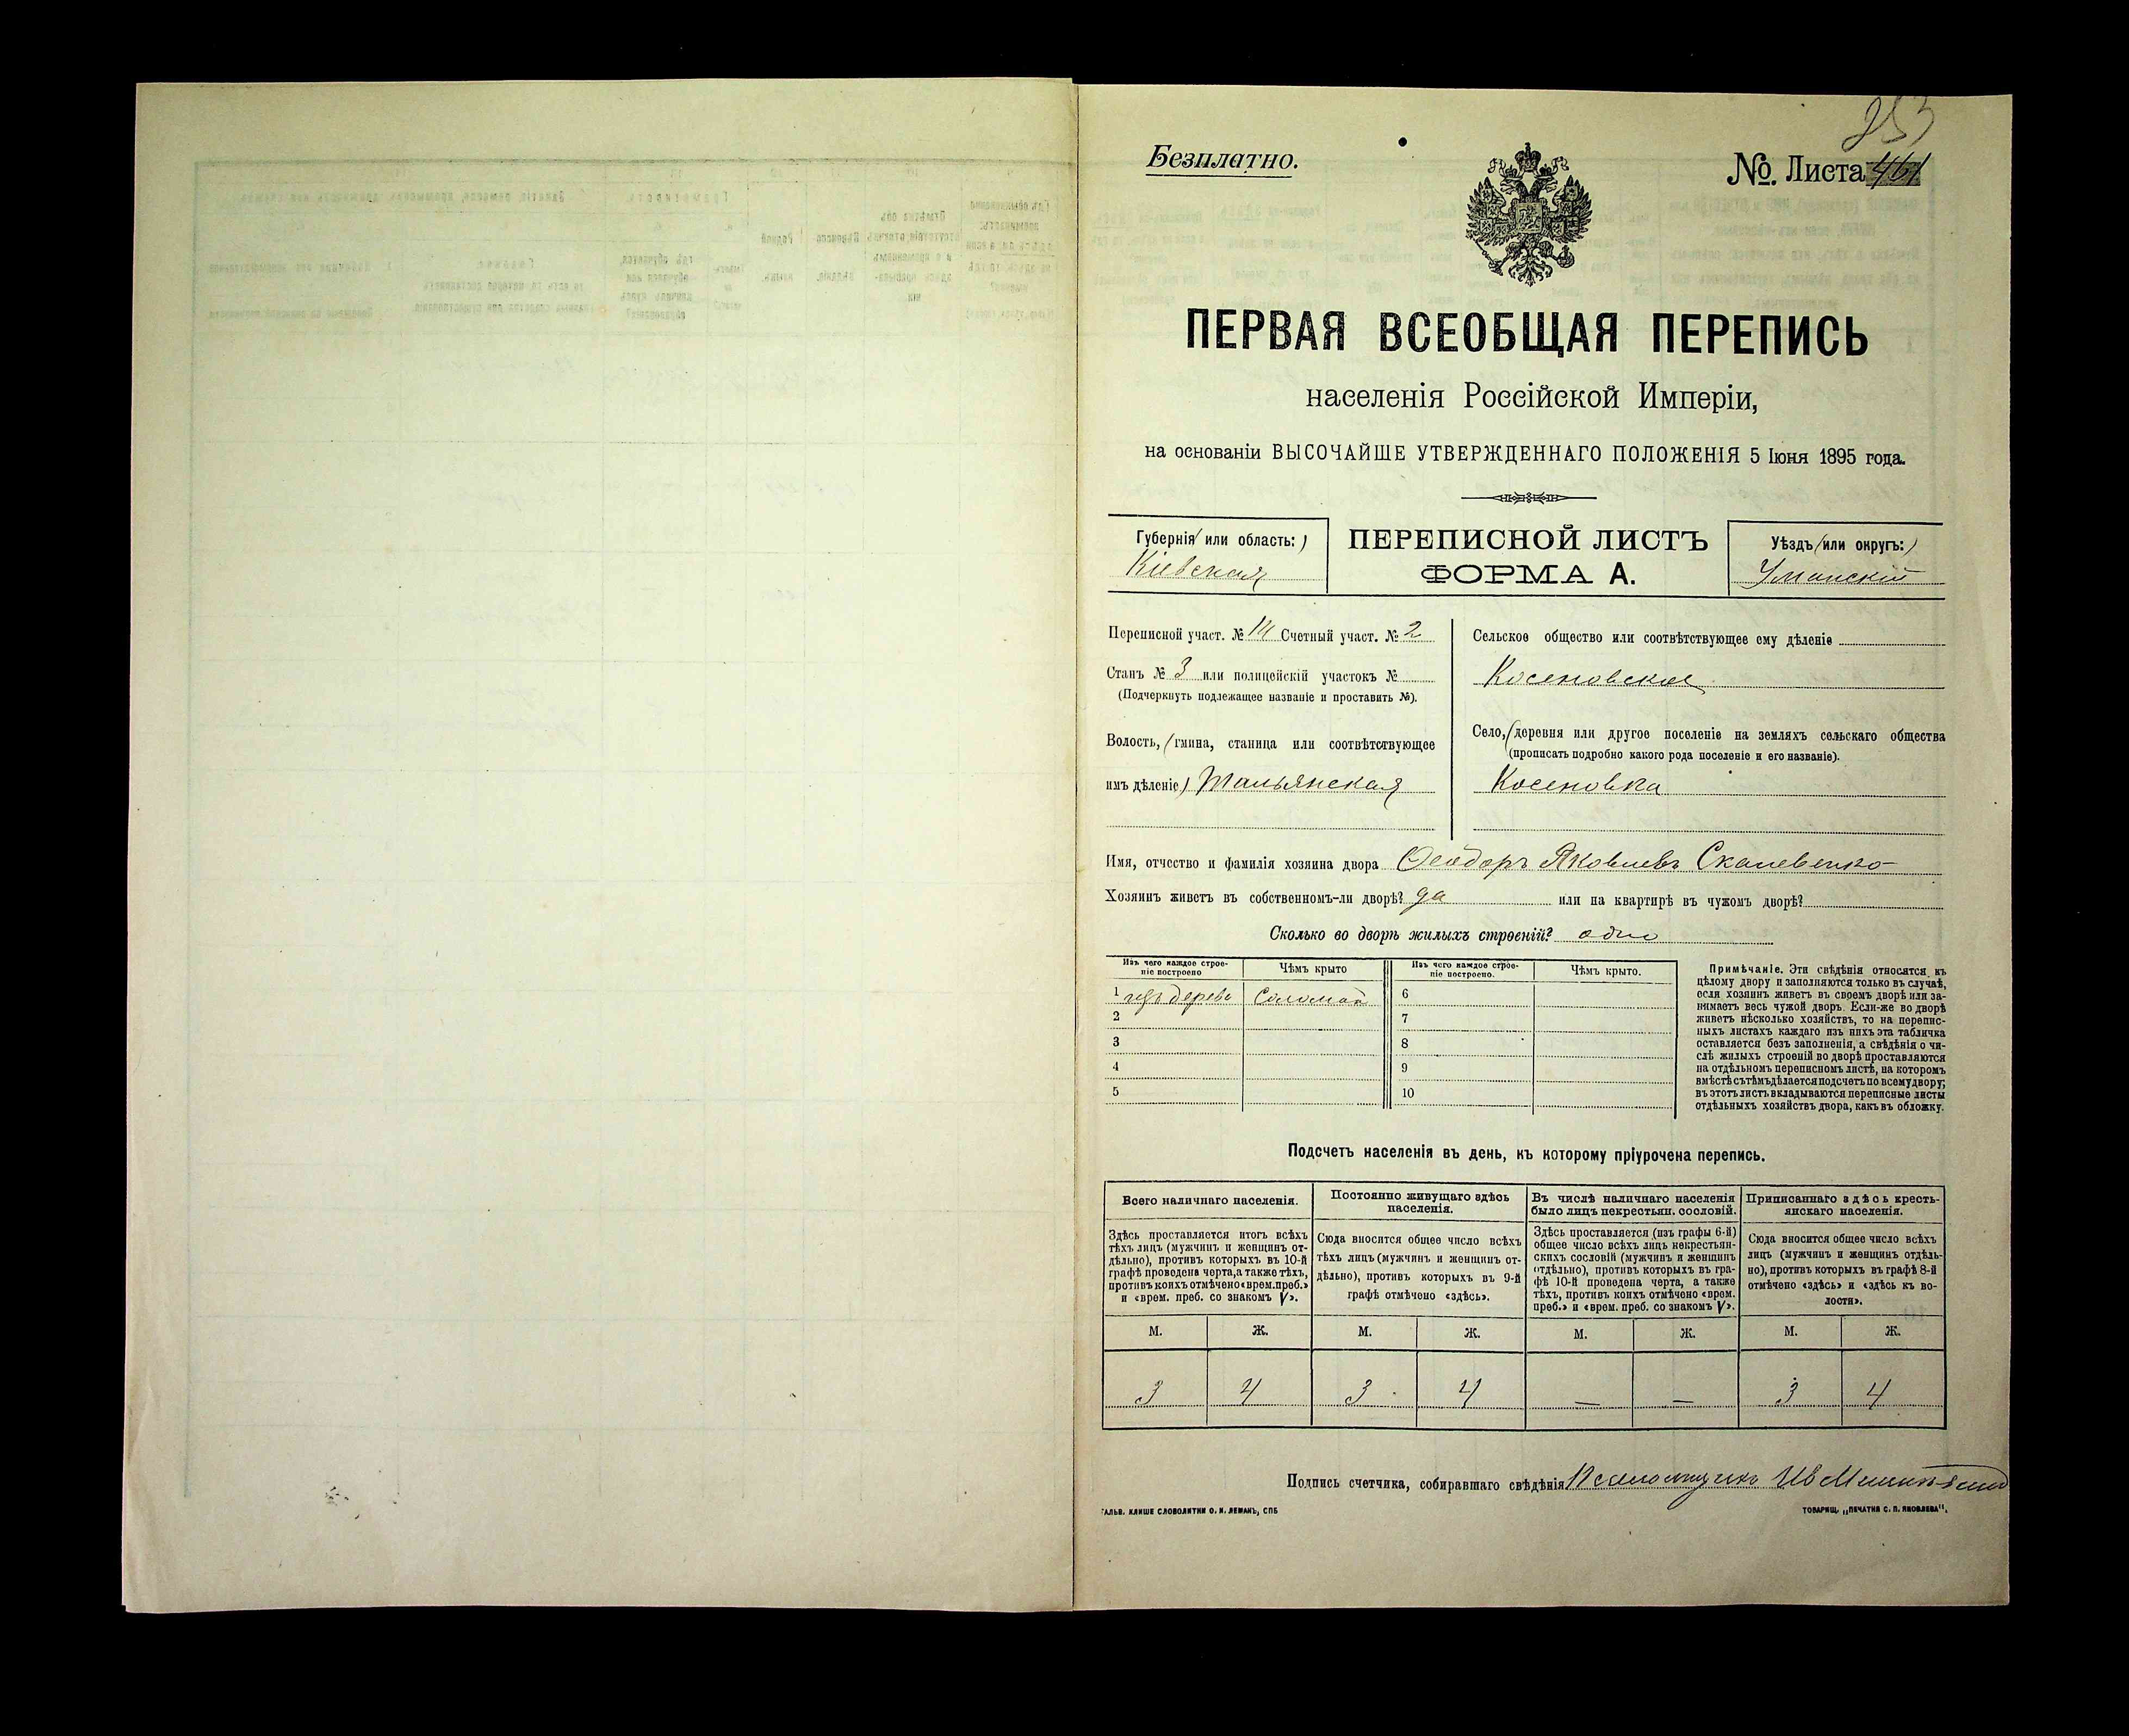 253
Безплатно.
№. Листа 461
ПЕРВАЯ ВСЕОБЩАЯ ПЕРЕПИСЬ
населенія Россійской Имперіи,
на основаніи ВЫСОЧАЙШЕ УТВЕРЖДЕННАГО ПОЛОЖЕНІЯ 5 Іюня 1895 года.
Губернія (или область:)
Кіевская
ПЕРЕПИСНОЙ ЛИСТЪ
ФОРМА А.
Уѣздъ (или округъ:)
Уманскій
Переписной участ. № 14 Счетный участ. № 2
Станъ № 3 или полицейскій участокъ №
(Подчеркнуть подлежащее названіе и проставить №).
Волость, (гмина, станица или соотвѣтствующее
имъ дѣленіе) Тальянская
Сельское общество или соотвѣтствующее ему дѣленіе
Косеновское
Село, (деревня или другое поселеніе на земляхъ сельскаго общества
(прописать подробно какого рода поселеніе и его названіе).
Косеновка
Имя, отчество и фамилія хозяина двора Ѳеодоръ Яковлевъ
Хозяинъ живетъ въ собственномъ-ли дворѣ? да или на квартирѣ въ чужомъ дворѣ?
Сколько во дворѣ жилыхъ строеній? одно
Изъ чего каждое строе-
ніе построено
Чѣмъ крыто
Изъ чего каждое строе-
ніе построено.
Чѣмъ крыто.
1 изъ дерева Соломой 6
2 7
3 8
4 9
5 10
Примѣчаніе. Эти свѣдѣнія относятся къ
цѣлому двору и заполняются только въ случаѣ,
если хозяинъ живетъ въ своемъ дворѣ или за-
нимаетъ весь чужой дворъ. Если-же во дворѣ
живетъ нѣсколько хозяйствъ, то на перепис-
ныхъ листахъ каждаго изъ нихъ эта табличка
оставляется безъ заполненія, а свѣдѣнія о чи-
слѣ жилыхъ строеній во дворѣ проставляются
на отдѣльномъ переписномъ листѣ, на которомъ
вмѣстѣ съ тѣмъ дѣлается подсчетъ по всему двору;
въ этотъ листъ вкладываются переписные листы
отдѣльныхъ хозяйствъ двора, какъ въ обложку.
Подсчетъ населенія въ день, къ которому пріурочена перепись.
Всего наличнаго населенія.
Здѣсь проставляется итогъ всѣхъ
тѣхъ лицъ (мужчинъ и женщинъ от-
дѣльно), противъ которыхъ въ 10-й
графѣ проведена черта, а также тѣхъ,
противъ коихъ отмѣчено «врем. преб.»
и «врем. преб. со знакомъ V».
Постоянно живущаго здѣсь
населенія.
Сюда вносится общее число всѣхъ
тѣхъ лицъ (мужчинъ и женщинъ от-
дѣльно), противъ которыхъ въ 9-й
графѣ отмѣчено «здѣсь».
Въ числѣ наличнаго населенія
было лицъ некрестьян. сословій.
Здѣсь проставляется (изъ графы 6-й)
общее число всѣхъ лицъ некрестьян-
скихъ сословій (мужчинъ и женщинъ
отдѣльно), противъ которыхъ въ гра-
фѣ 10-й проведена черта, а также
тѣхъ, противъ коихъ отмѣчено «врем.
преб.» и «врем. преб. со знакомъ V».
Приписаннаго здѣсь кресть-
янскаго населенія.
Сюда вносится общее число всѣхъ
лицъ (мужчинъ и женщинъ отдѣль-
но), противъ которыхъ въ графѣ 8-й
отмѣчено «здѣсь» и «здѣсь къ во-
лости».
М. Ж. М. Ж. М. Ж. М. Ж.
3 4 3 4 — — 3 4
Подпись счетчика, собиравшаго свѣдѣнія
ГАЛЬВ. КЛИШЕ СЛОВОЛИТНИ О. И. ЛЕМАНЪ, СПБ
ТОВАРИЩ. „ПЕЧАТНЯ С. П. ЯКОВЛЕВА“,